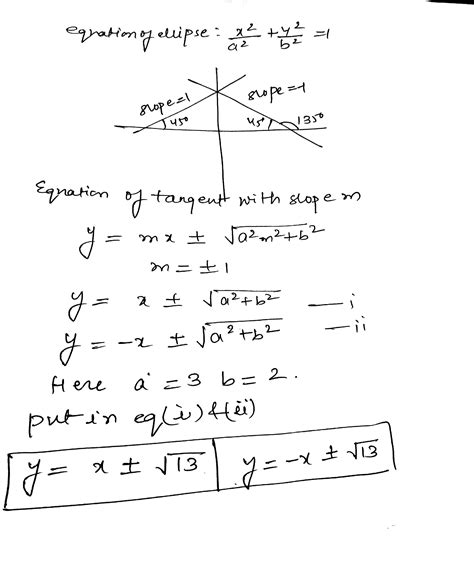 equation of ellipse : x²/a² + y²/b² = 1
slope=1 slope=-1
45° 45° 135°
Equation of tangent with slope m
y = mx ± √a²m²+b²
m = ±1
y = x ± √a²+b² — i
y = -x ± √a²+b² — ii
Here a = 3 b = 2.
put in eq(i) & (ii)
y = x ± √13 y = -x ± √13